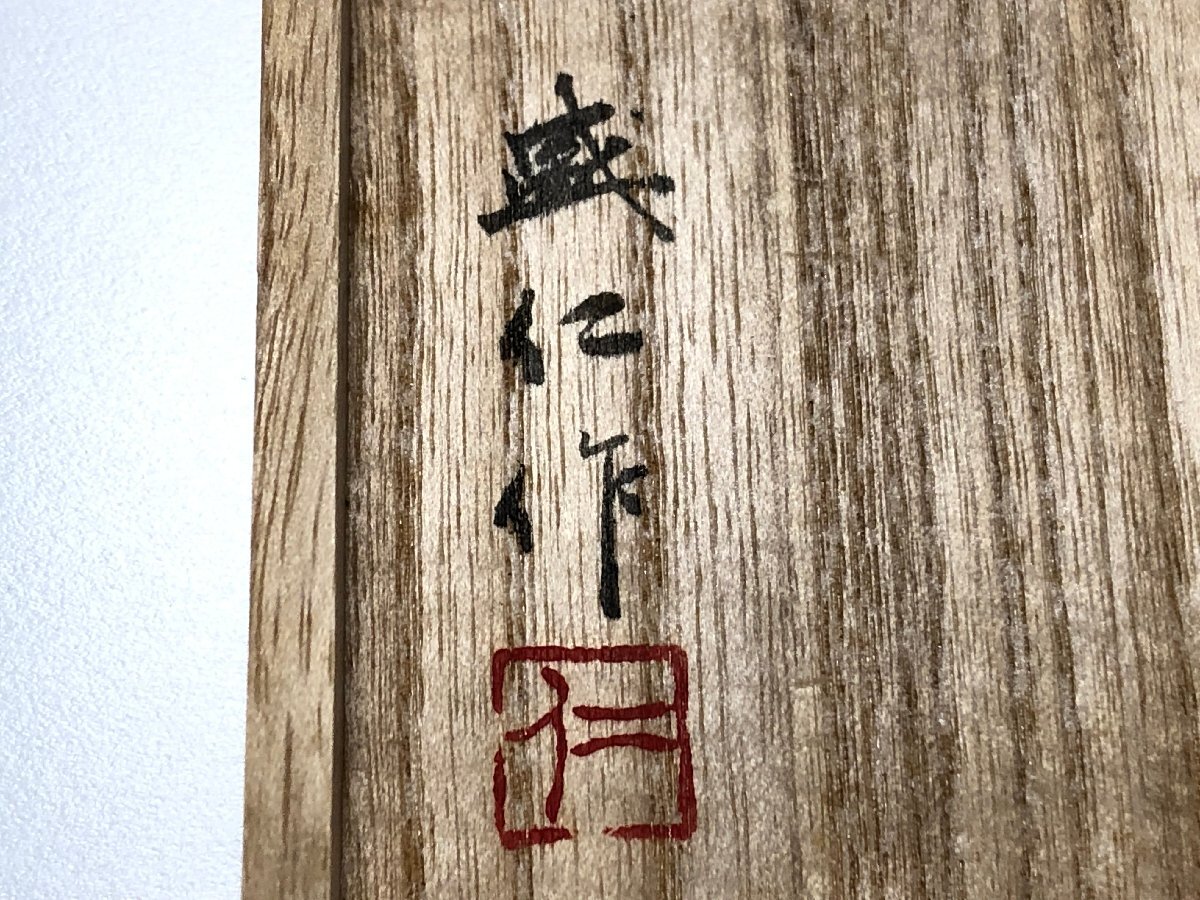 盛仁作
仁